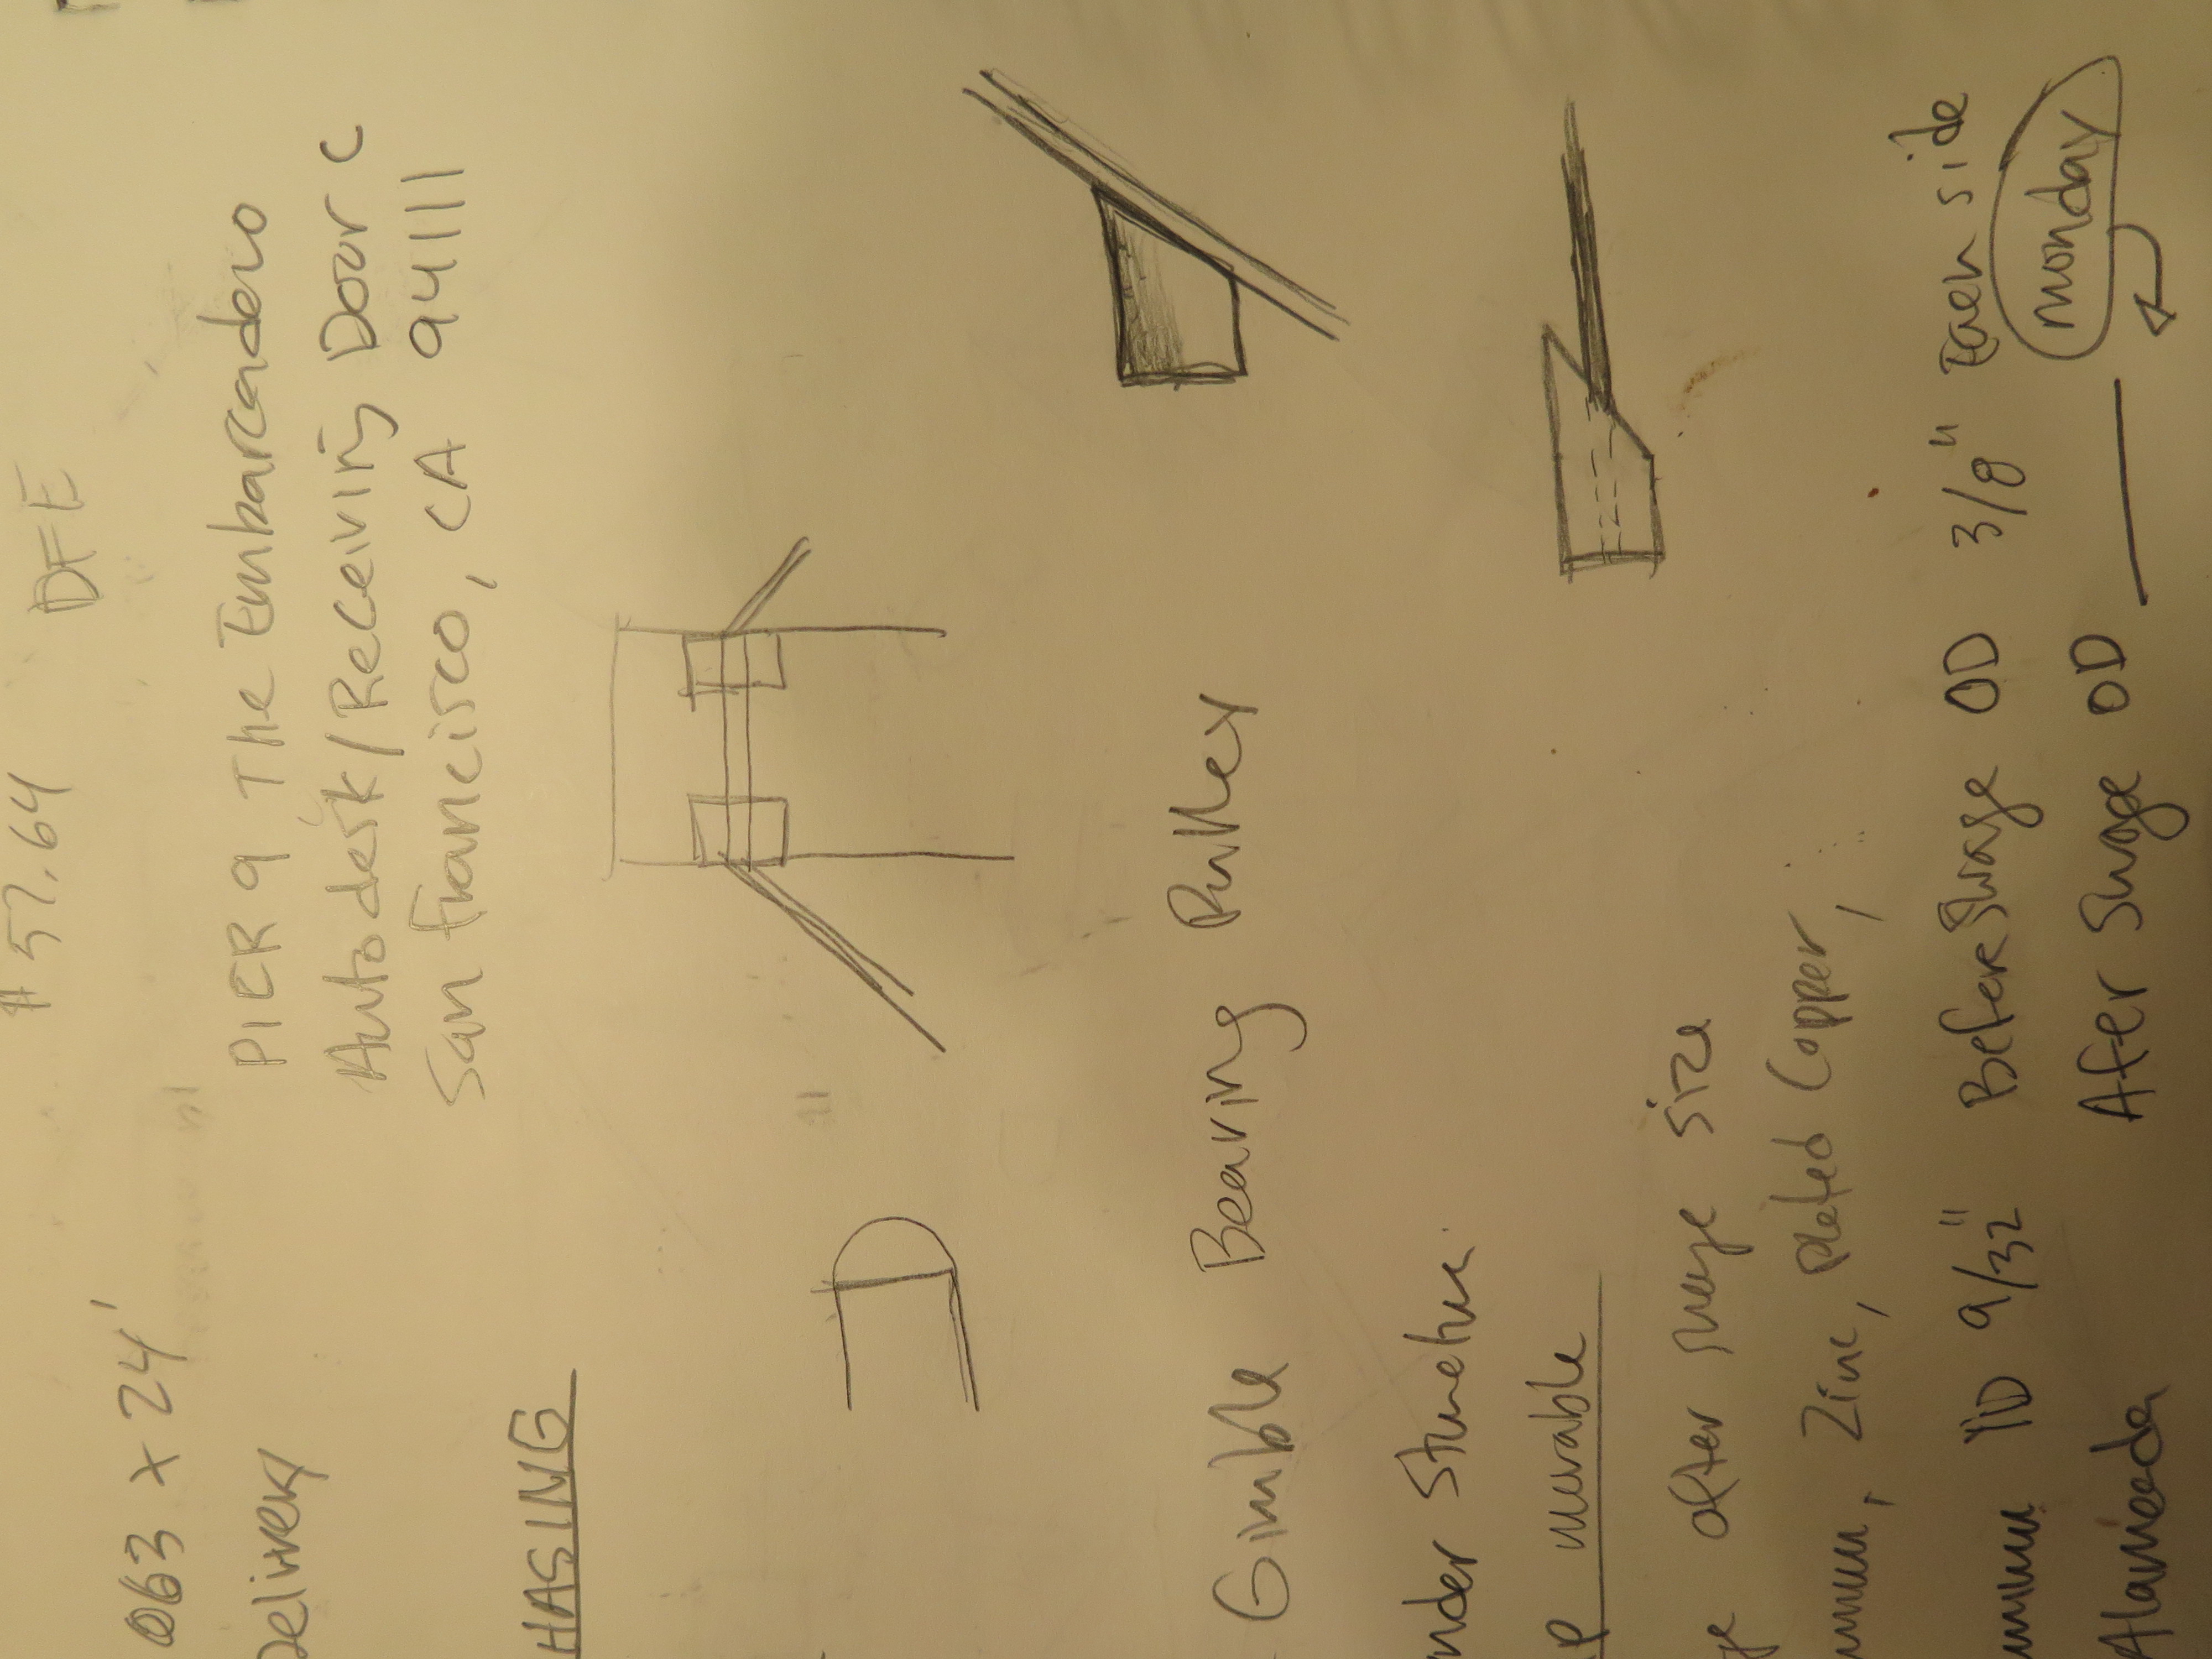 $57.64 DFE
063 x 24'
Delivery
PIER 9 The Embarcadero
Autodesk/Receiving Door C
San Francisco, CA 94111
HASING
Gimble Bearing Pulley
nder
P movable
after swage size
Zinc, plated Copper,
ID 9/32" Before Swage OD 3/8" Each side
Alameda After Swage OD ——— monday